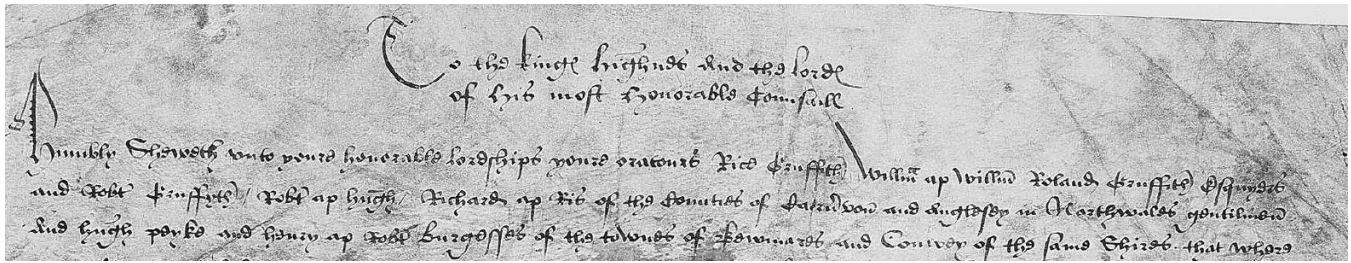 To the kinge highnes and the lorde
of his most honorable Counsaill
Humbly Sheweth unto youre honorable lordships youre oratours Rice Gruffith Willm ap Willm Roland Gruffith Esquyers
and Robt Gruffyth / Robt ap hugh / Richard ap Ris of the Counties of Caernvon and Anglesey in Northwales gentilmen
And hugh peyke and henry ap Robt Burgesses of the townes of Bewmares and Conwey of the same Shires that where